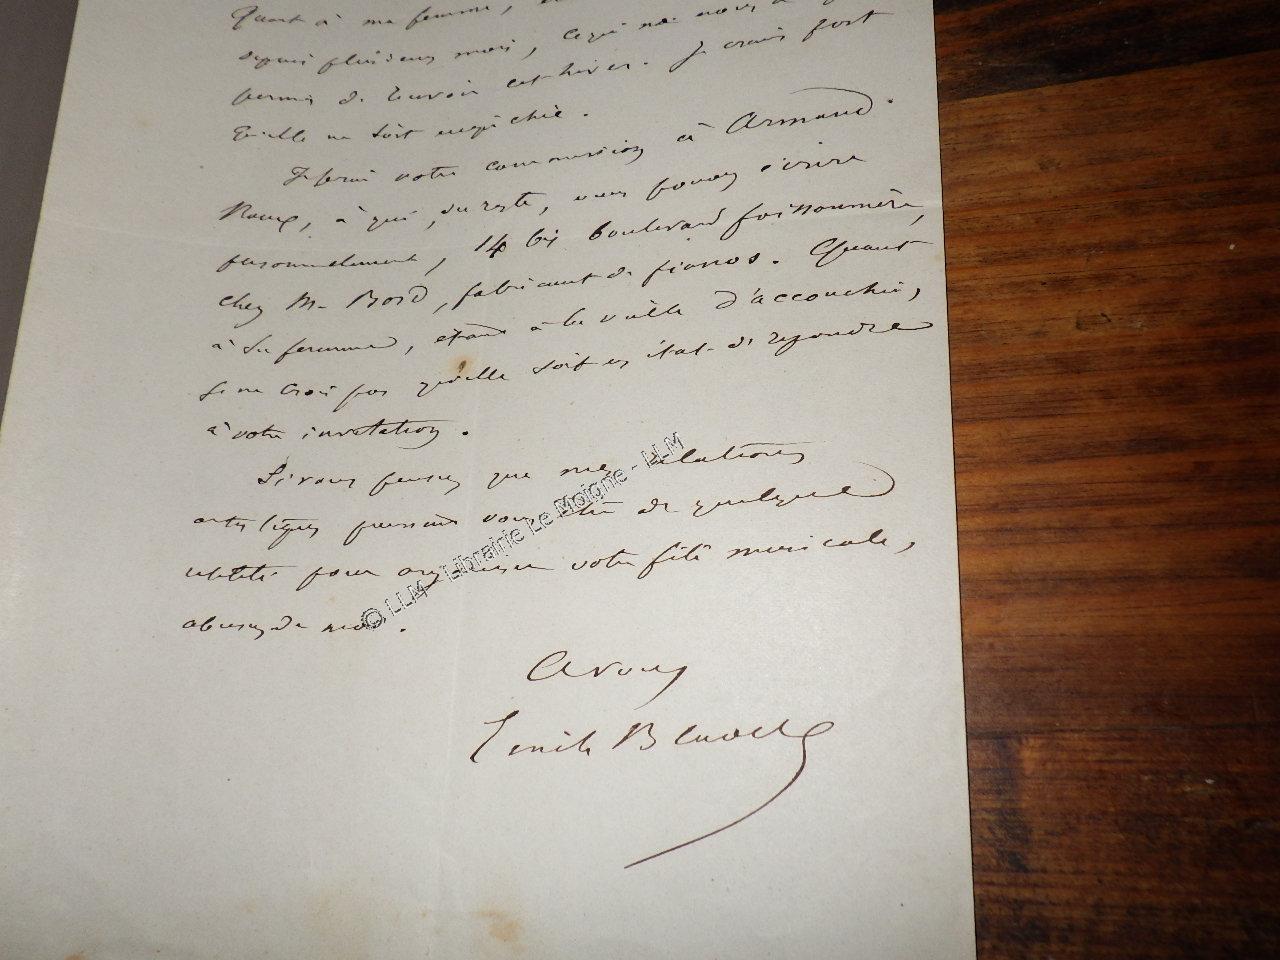 Quant à ma femme,
depuis plusieurs mois, ce qui ne nous a
permis de recevoir cet hiver. Je crains fort
qu'elle ne soit empêchée.
Je ferai votre commission à Armand
Roux, à qui, du reste, vous pouvez écrire
personnellement, 14 bis boulevard poissonnière,
chez M. Bord, fabricant de pianos. Quant
à sa femme, étant à la veille d'accoucher,
je ne crois pas qu'elle soit en état de répondre
à votre invitation.
Si vous pensez que mes relations
artistiques puissent vous être de quelque
utilité pour organiser votre fête musicale,
abusez de moi.
A vous
Emile
© LLM - Librairie Le Moigne - LLM